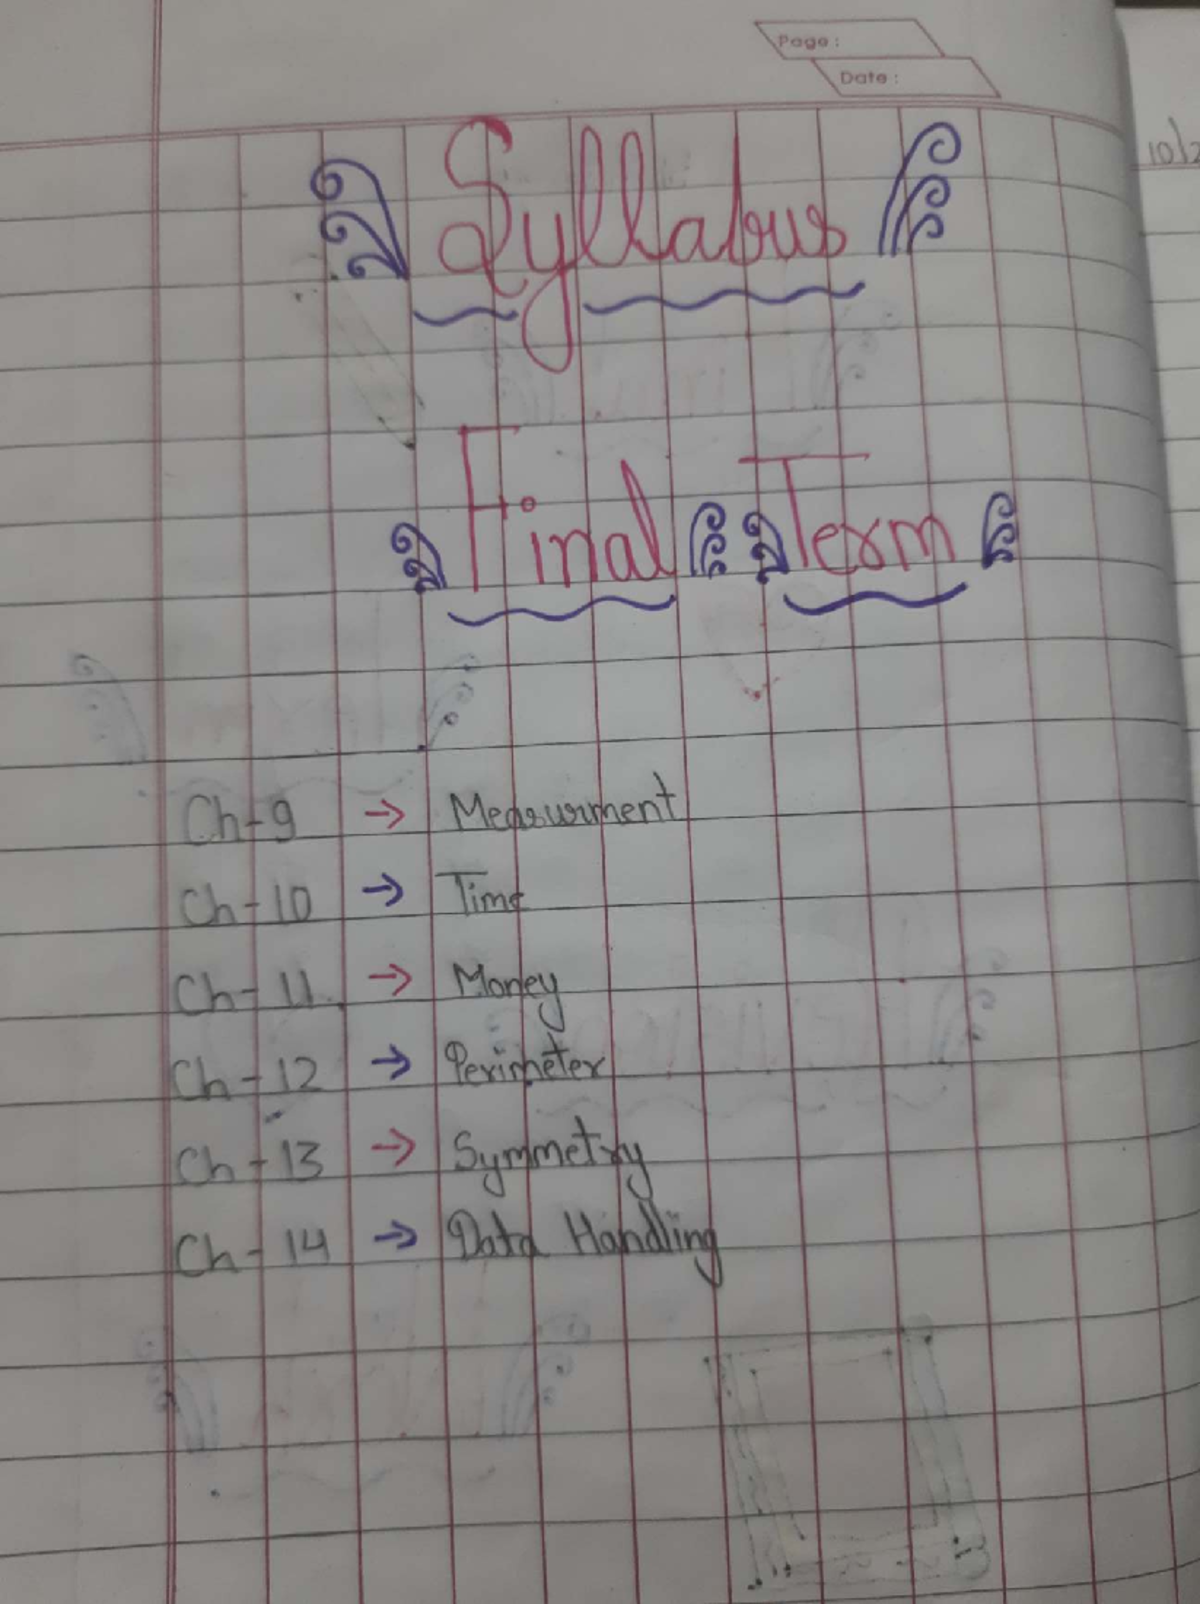 Page :
Date :
10/2
Syllabus
Final Term
Ch-9 → Measurment
Ch-10 → Time
Ch-11 → Money
Ch-12 → Perimeter
Ch-13 → Symmetry
Ch-14 → Data Handling